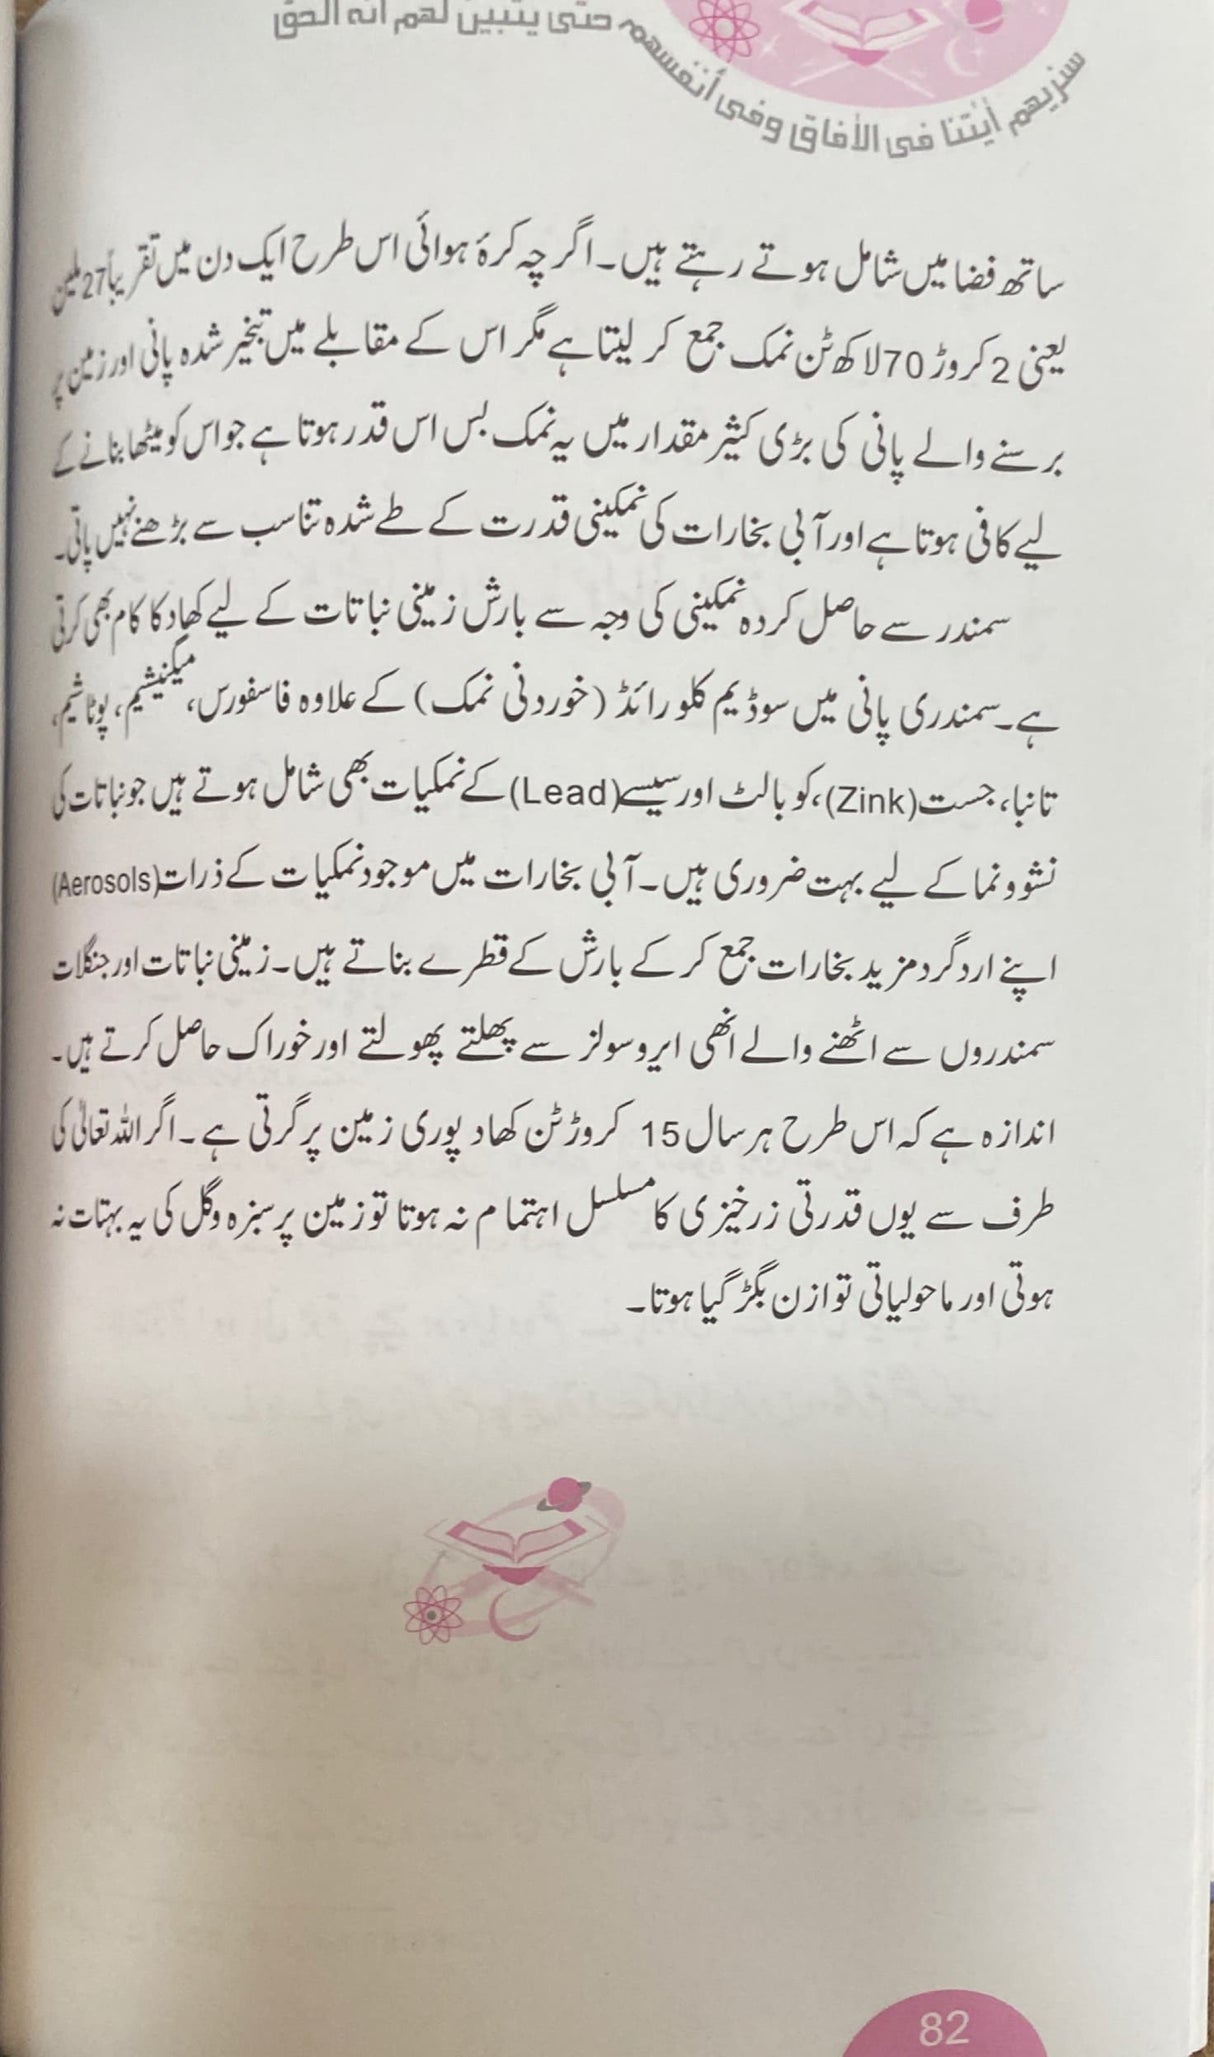 سنريهم أيتنا فى الأفاق وفى أنفسهم حتى يتبين لهم أنه الحق
ساتھ فضا میں شامل ہوتے رہتے ہیں۔ اگرچہ کرۂ ہوائی اس طرح ایک دن میں تقریباً 27 ملین
یعنی 2 کروڑ 70 لاکھ ٹن نمک جمع کر لیتا ہے مگر اس کے مقابلے میں تبخیر شدہ پانی اور زمین پر
برسنے والے پانی کی بڑی کثیر مقدار میں یہ نمک بس اس قدر ہوتا ہے جو اس کو میٹھا بنانے کے
لیے کافی ہوتا ہے اور آبی بخارات کی نمکینی قدرت کے طے شدہ تناسب سے بڑھنے نہیں پاتی۔
سمندر سے حاصل کردہ نمکینی کی وجہ سے بارش زمینی نباتات کے لیے کھاد کا کام بھی کرتی
ہے۔ سمندری پانی میں سوڈیم کلورائڈ (خوردنی نمک) کے علاوہ فاسفورس، میگنیشیم، پوٹاشیم،
تانبا، جست (Zink)، کوبالٹ اور سیسے (Lead) کے نمکیات بھی شامل ہوتے ہیں جو نباتات کی
نشوونما کے لیے بہت ضروری ہیں۔ آبی بخارات میں موجود نمکیات کے ذرات (Aerosols)
اپنے اردگرد مزید بخارات جمع کر کے بارش کے قطرے بناتے ہیں۔ زمینی نباتات اور جنگلات
سمندروں سے اٹھنے والے انھی ایروسولز سے پھلتے پھولتے اور خوراک حاصل کرتے ہیں۔
اندازہ ہے کہ اس طرح ہر سال 15 کروڑ ٹن کھاد پوری زمین پر گرتی ہے۔ اگر اللہ تعالیٰ کی
طرف سے یوں قدرتی زرخیزی کا مسلسل اہتمام نہ ہوتا تو زمین پر سبزہ و گل کی یہ بہتات نہ
ہوتی اور ماحولیاتی توازن بگڑ گیا ہوتا۔
82